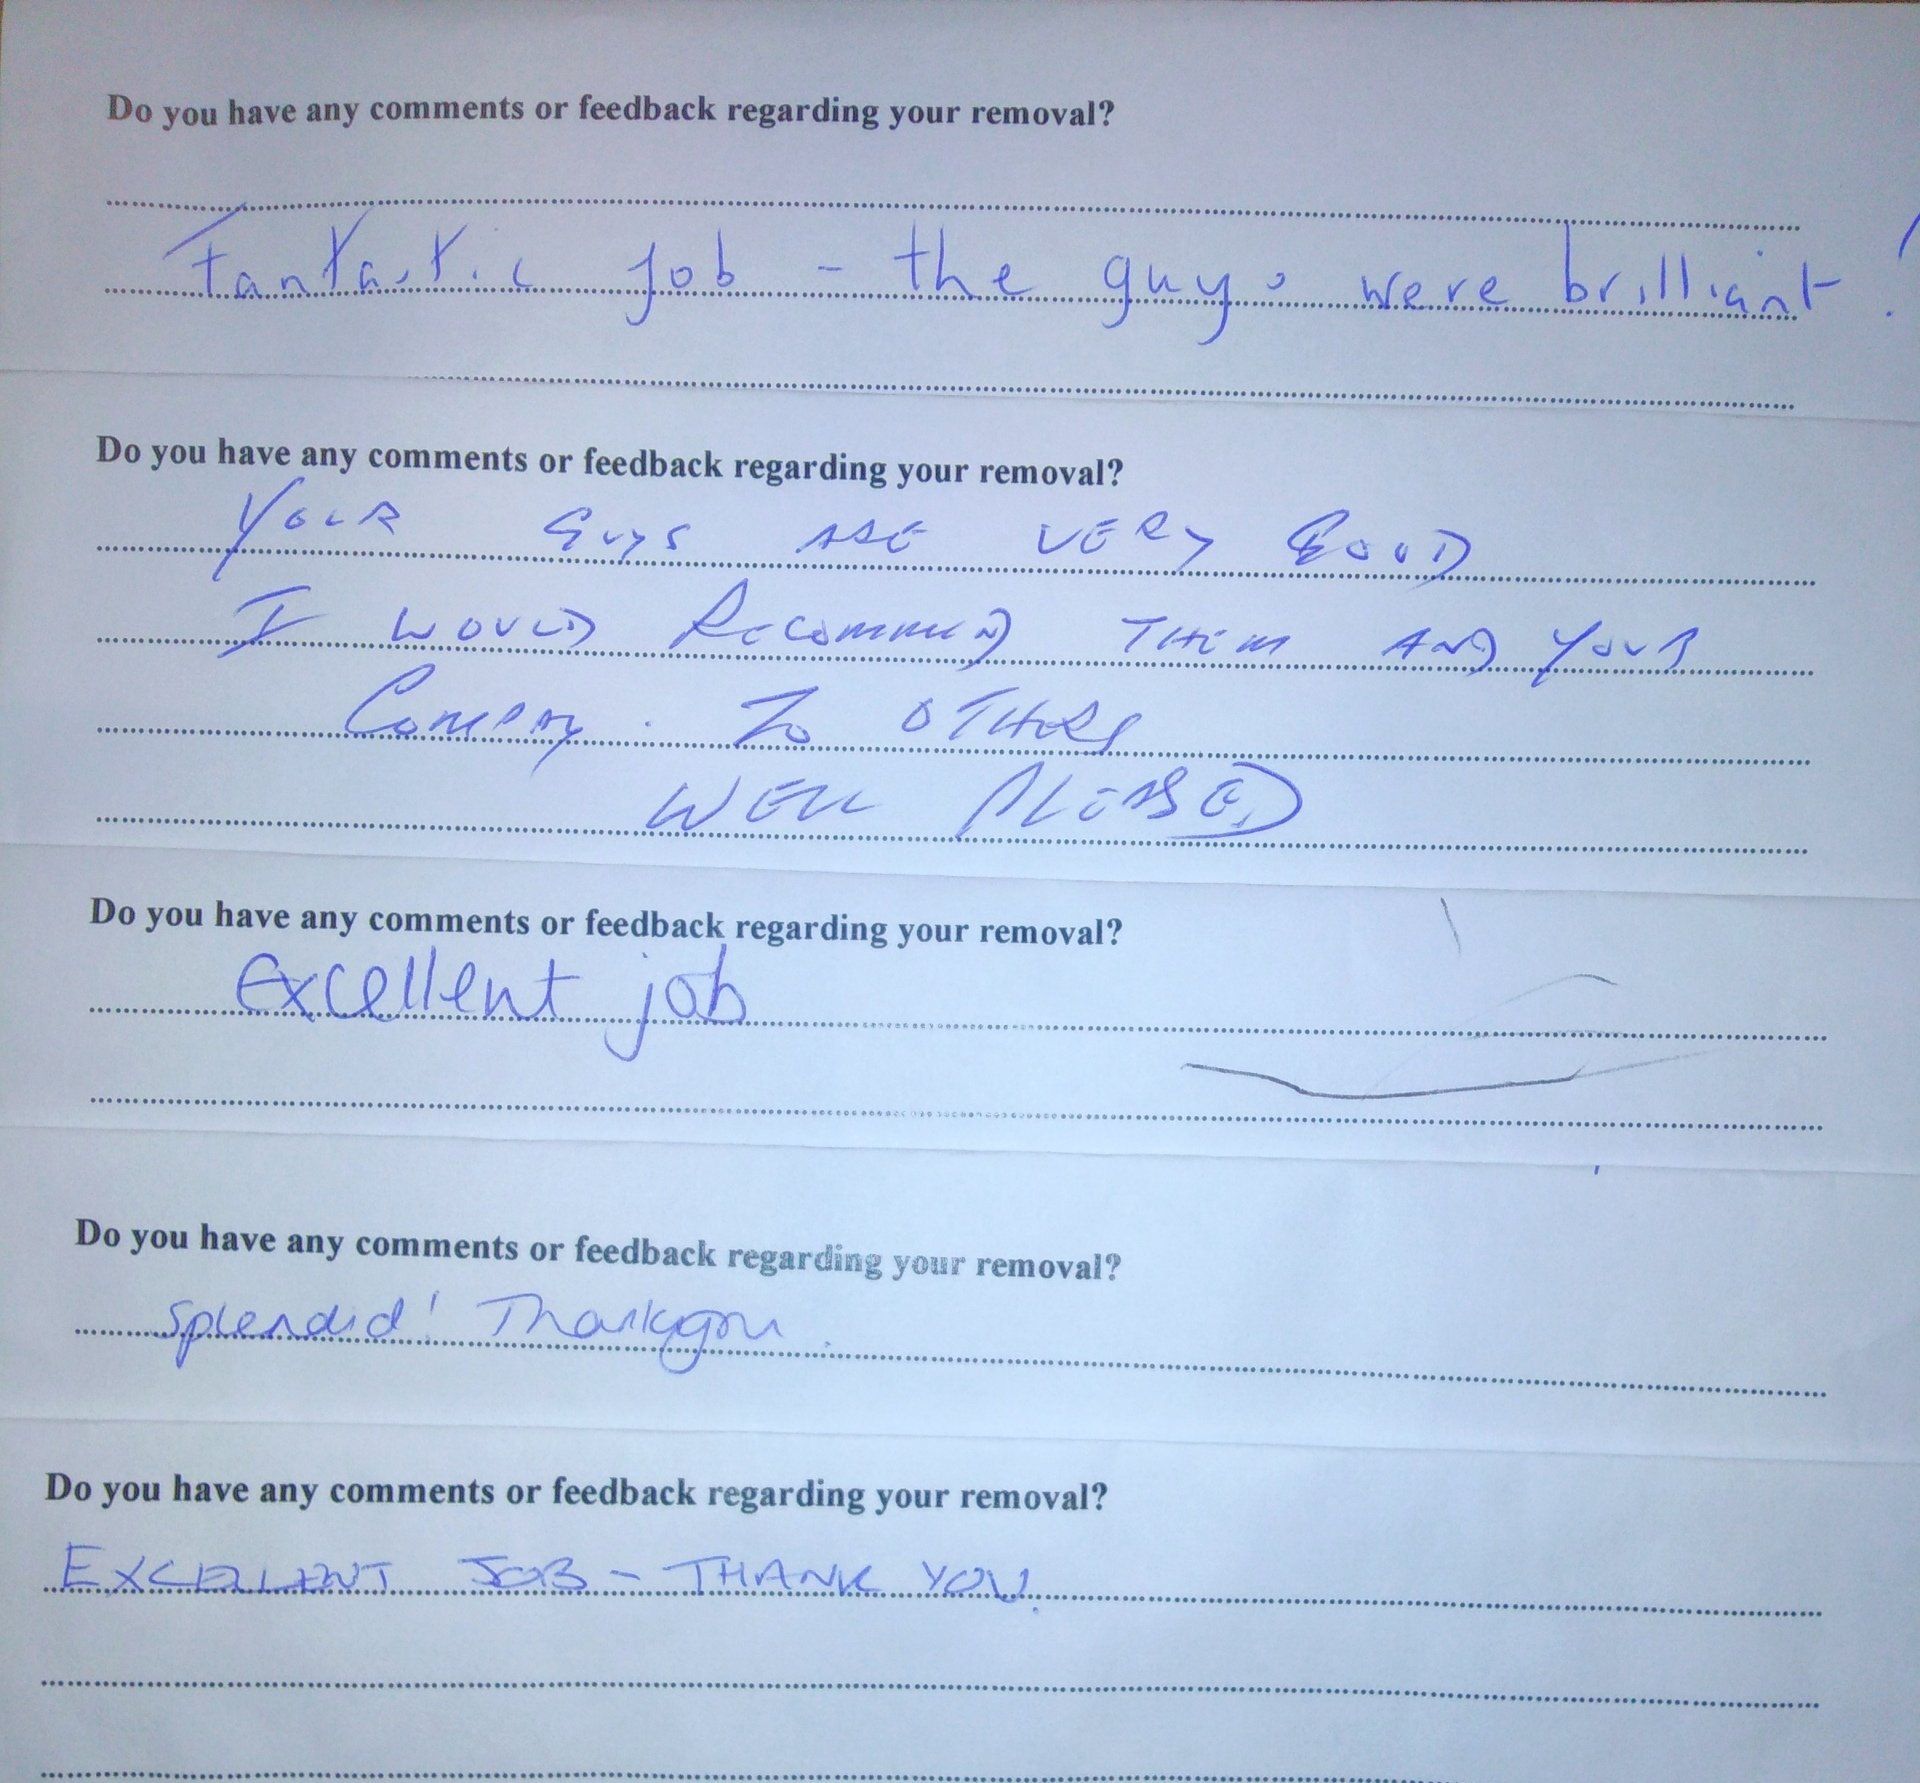 Do you have any comments or feedback regarding your removal?
Fantastic Job - the guys were brilliant!
Do you have any comments or feedback regarding your removal?
YOUR GUYS ARE VERY GOOD
I WOULD RECOMMEND THEM AND YOUR
COMPANY. TO OTHERS
WELL PLEASED
Do you have any comments or feedback regarding your removal?
Excellent job
Do you have any comments or feedback regarding your removal?
Splendid! Thankyou.
Do you have any comments or feedback regarding your removal?
EXCELLENT JOB - THANK YOU.